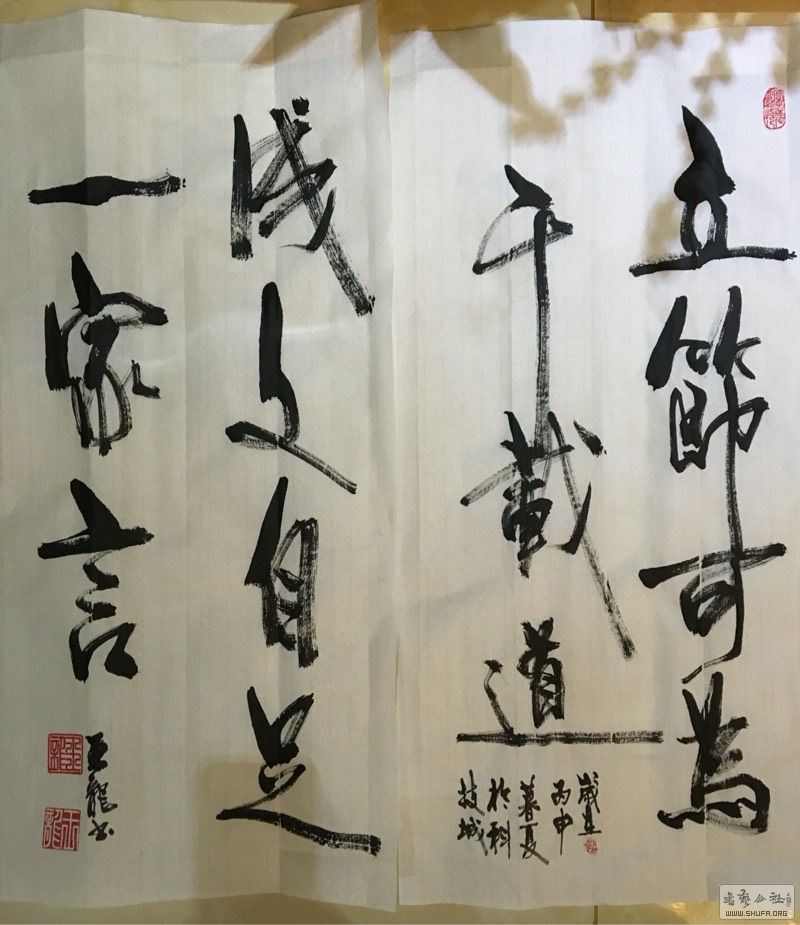 立節可為
千載道
歲在
丙申
暮夏
於科
技城
成文自足
一家言
玉龍書
書藝公社
WWW.SHUFA.ORG